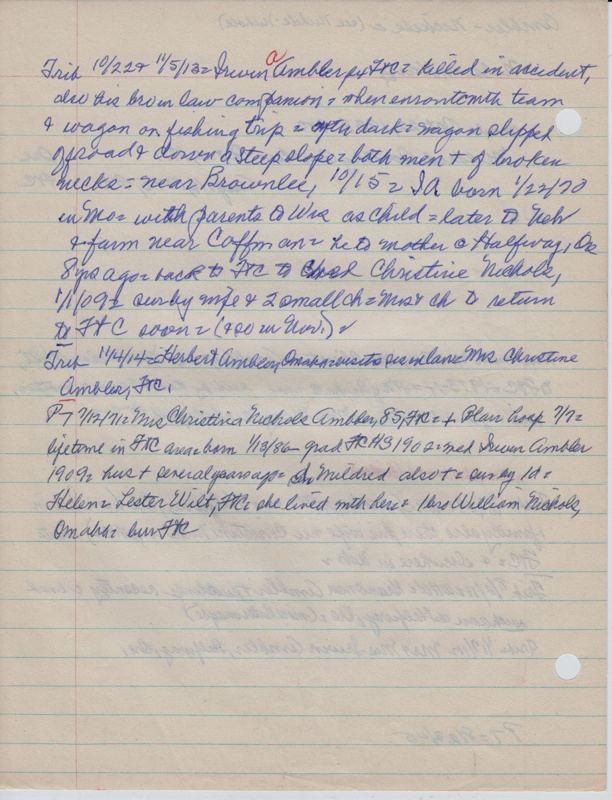 a
Trib 10/22 & 11/5/13 = Irwin Ambler px FtC = killed in accident,
also his bro in law companion = when enroute with team
& wagon on fishing trip = after dark = wagon slipped
off road & down a steep slope = both men + of broken
necks = near Brownlee, 10/15 = IA born 1/22/70
in Mo = with parents to Wis as child = later to Neb
& farm near Coffman = he to mother @ Halfway, Ore
8 yrs ago = back to FtC to Christine Nichols,
1/1/09 = surv by wife & 2 small ch = Mrs & ch to return
to FtC soon = (& so in Nov.)
Trib 11/4/14 = Herbert Ambler, Omaha = visits sis in law = Mrs Christine
Ambler, FtC.
PT 7/12/71 = Mrs Christina Nichols Ambler, 85, FtC = + Blair hosp 7/7 =
lifetime in FtC area = born 1/13/86 = grad FCHS 1902 = med Irwin Ambler
1909 = hus + several years ago = Mildred also + = surv by 1d =
Helen = Lester Wilt, FtC = she lived with her = 1 bro William Nichols,
Omaha = bur FtC